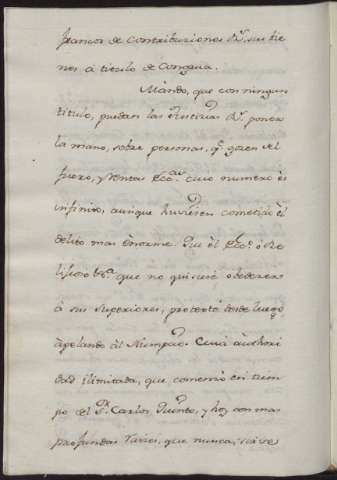 francos de Contribuziones Rs. sus bie
nes à titulo de Congrua.
Mando, que con ningun
titulo, puedan las Justizias Rs. poner
la mano, sobre personas, q.e gozen el
fuero, y Rentas Ecc.cas cuio numero ès
infinito, aunque huviesen cometido èl
delito mas ènorme. Que èl Ecc.o ò Re
lisioso &.a que no quisiere obedezer
à sus Superiores, protexte desde luego,
apelando àl Nunpcio. Cuia àuthori
dad ilimitada, que comenzo èn tiem
po del S.r Carlos Quinto, y hoy con mas
profundas raizes, que nunca, sirve